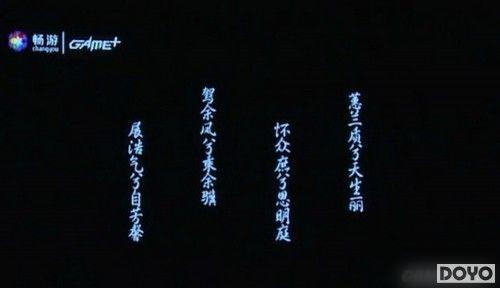 畅游
changyou
GAME+
蕙兰质兮天生丽
怀众庶兮思明庭
驾余凤兮乘余骐
展浩气兮自芳馨
DOYO